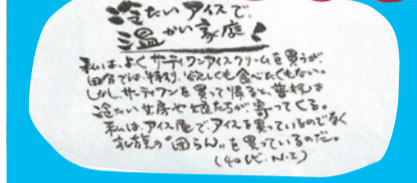 冷たいアイスで、
温かい家庭!
私は、よくサーティワンアイスクリームを買うが
自分では、特別、欲しくも食べたくもない。
しかし、サーティワンを買って帰ると、普段は
冷たい女房や娘たちが、寄ってくる。
私は、アイス屋で、アイスを買っているのでなく
家族の“団らん”を買っているのだ。
(40代、N・I)